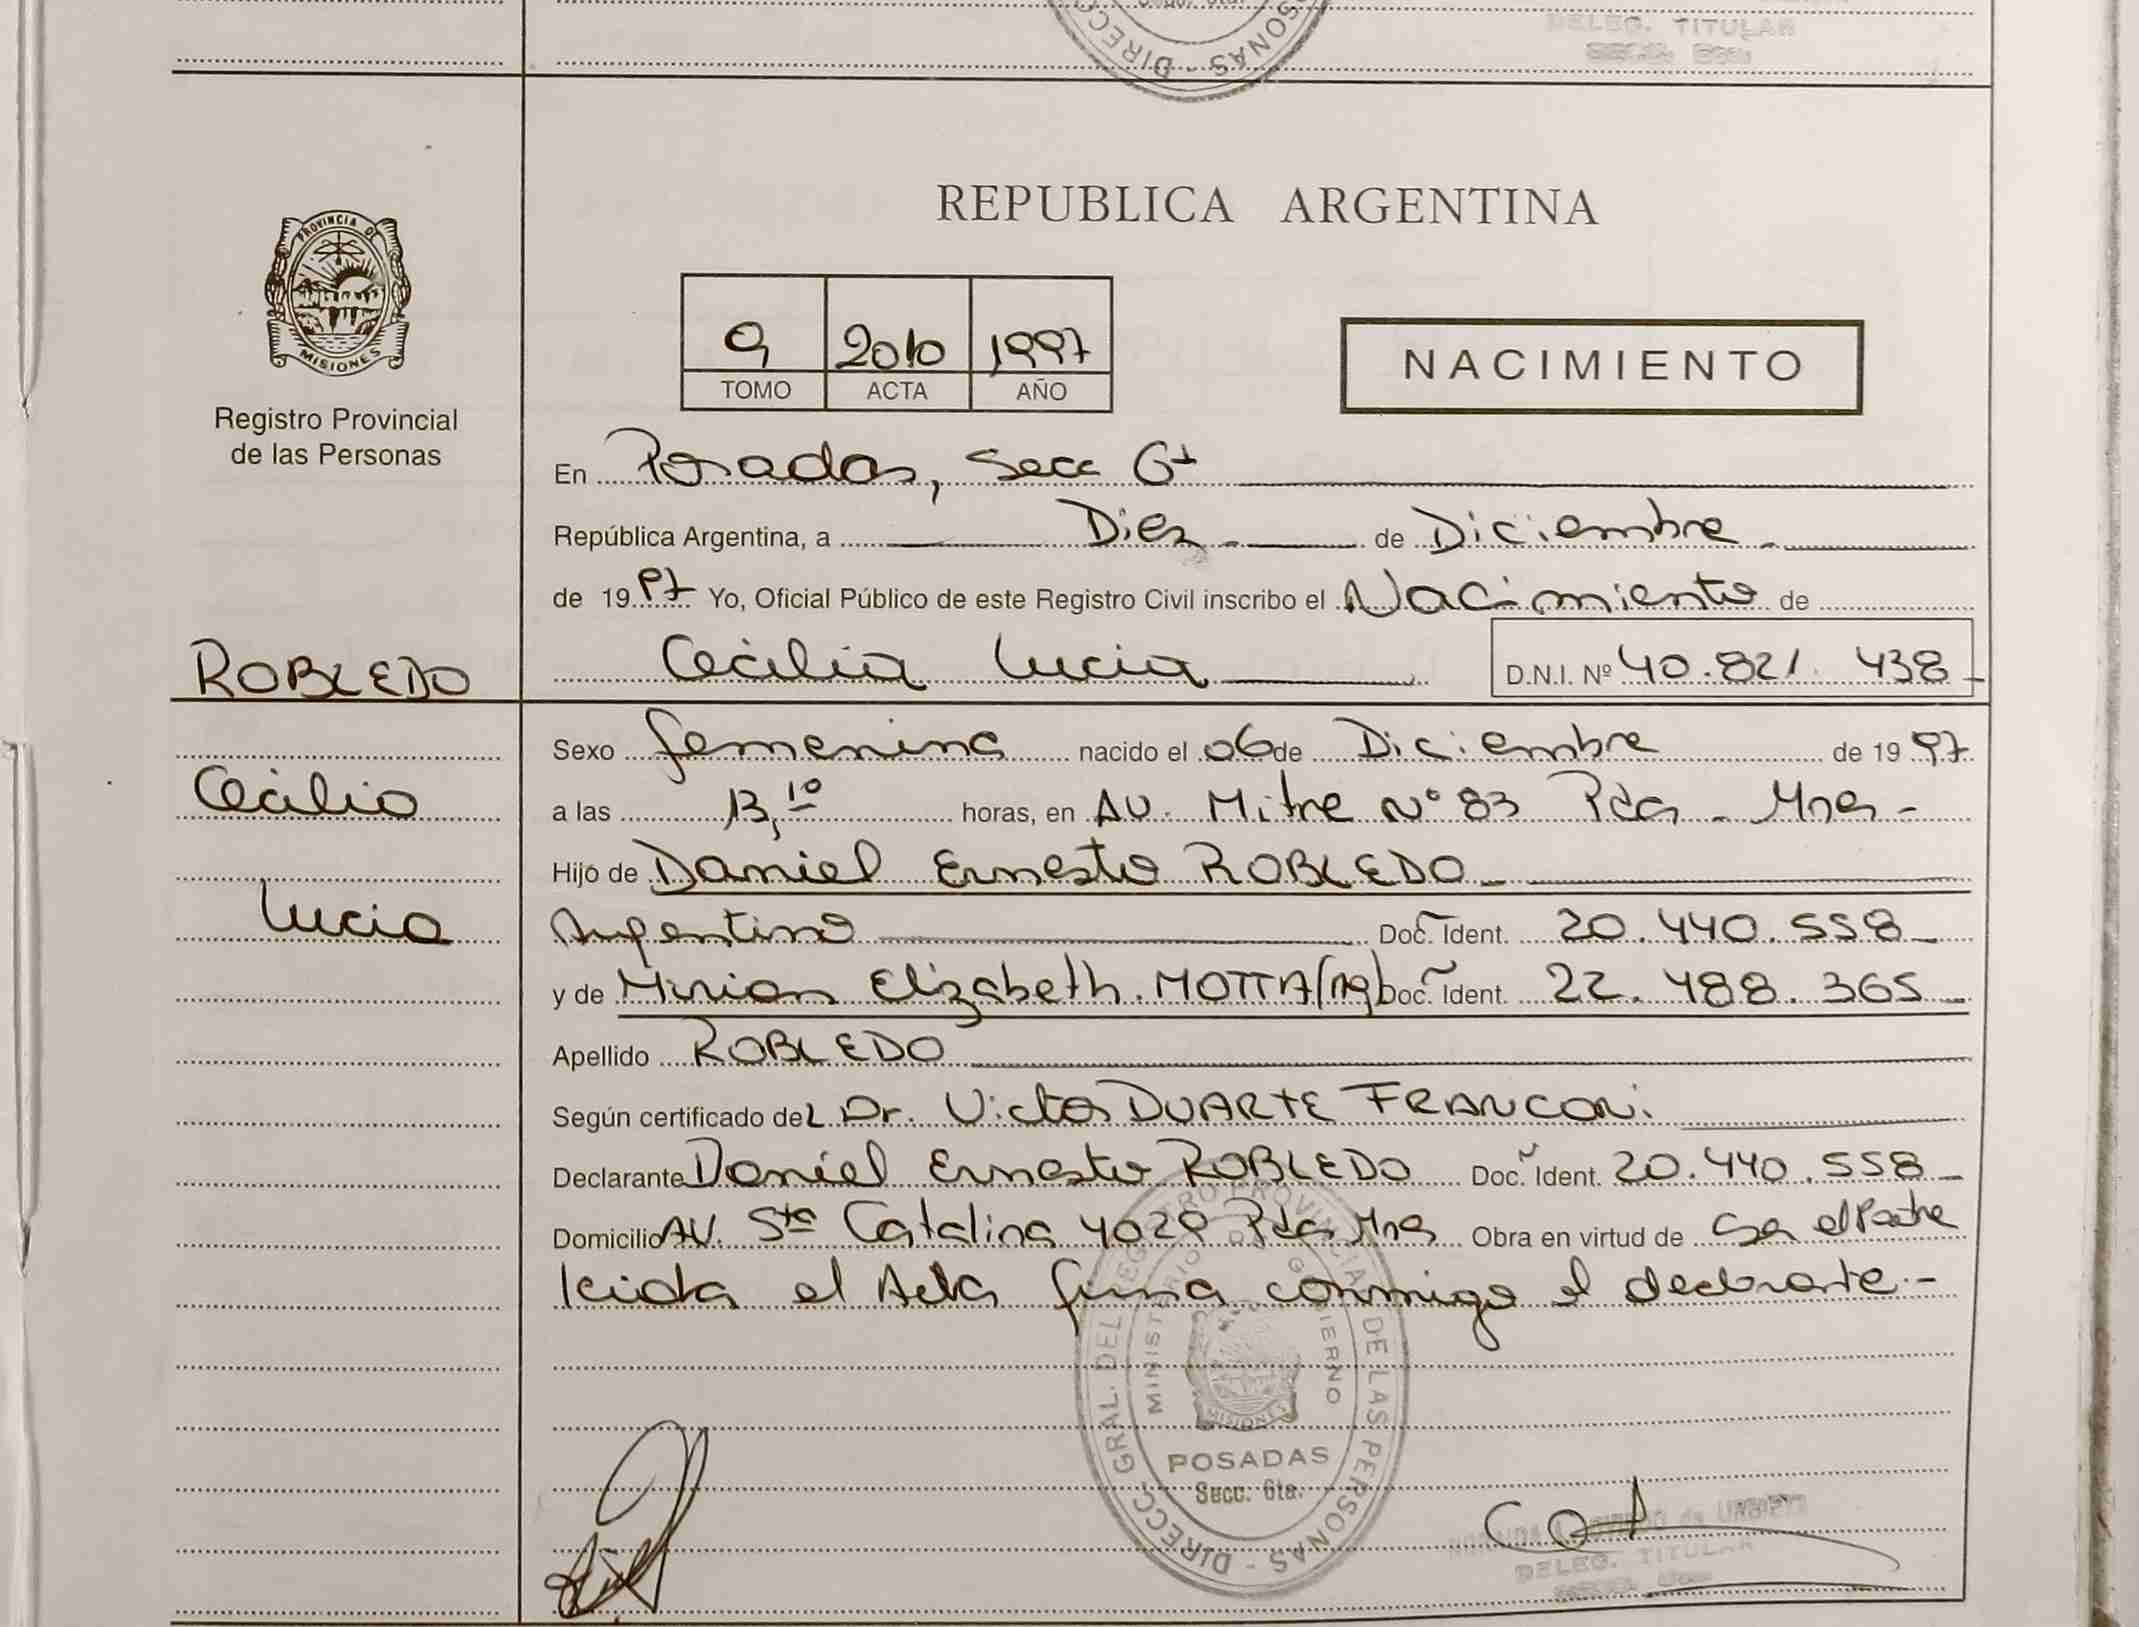 DIRECC
SONAS - DIREC
DELEG. TITULAR
REPUBLICA ARGENTINA
PROVINCIA DE
MISIONES
Registro Provincial
de las Personas
9 2010 1997
TOMO ACTA AÑO
NACIMIENTO
En Posadas, Secc 6ta
República Argentina, a Diez - de Diciembre -
de 1997 Yo, Oficial Público de este Registro Civil inscribo el Nacimiento de
ROBLEDO
Cecilia Lucia
D.N.I. Nº 40.821.438 -
Sexo femenino nacido el 06 de Diciembre de 1997
Cecilia
a las 13,10 horas, en AV. Mitre Nº 83 Pdas - Mnes -
Hijo de Daniel Ernesto ROBLEDO -
Lucia
Argentino Doc. Ident. 20.440.558 -
y de Mirian Elizabeth. MOTTA (Ag) Doc. Ident. 22.488.365 -
Apellido ROBLEDO
Según certificado del Dr. Victor DUARTE FRANCONI.
Declarante Daniel Ernesto ROBLEDO Doc. Ident. 20.440.558 -
Domicilio AV. Sta Catalina 4029 Pdas Mnes Obra en virtud de ser el Padre
leida el Acta firma conmigo el declarante -
DIRECC. GRAL. DEL REGISTRO PROVINCIAL DE LAS PERSONAS -
MINISTERIO DE GOBIERNO
MISIONES
POSADAS
Secc. 6ta.
DELEG. TITULAR